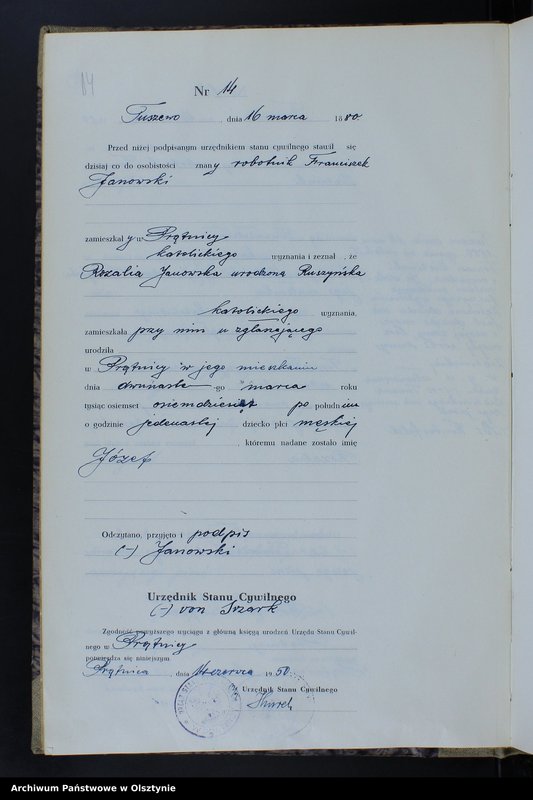 84
Nr 14
Tuszewo, dnia 16 marca 1880
Przed niżej podpisanym urzędnikiem stanu cywilnego stawił się
dzisiaj co do osobistości znany robotnik Franciszek
Janowski
zamieszkały w Prątnicy
katolickiego wyznania i zeznał, że
Rozalia Janowska urodzona Ruszyńska
katolickiego wyznania,
zamieszkała przy nim u zgłaszającego
urodziła
w Prątnicy w jego mieszkaniu
dnia dwunaste-go marca roku
tysiąc osiemset osiemdziesiąt po południu
o godzinie jedenastej dziecko płci męskiej
, któremu nadane zostało imię
Józef
Odczytano, przyjęto i podpis
(-) Janowski
Urzędnik Stanu Cywilnego
(-) von
Zgodność powyższego wyciągu z główną księgą urodzeń Urzędu Stanu Cywil-
nego w Prątnicy
potwierdza się niniejszym.
Prątnica, dnia czerwca 1950
Urzędnik Stanu Cywilnego
Archiwum Państwowe w Olsztynie